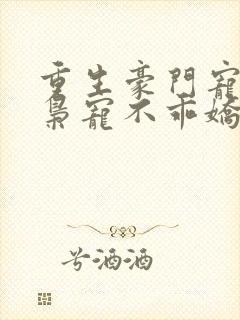 重生豪門寵
梟寵不乖嬌
兮酒酒